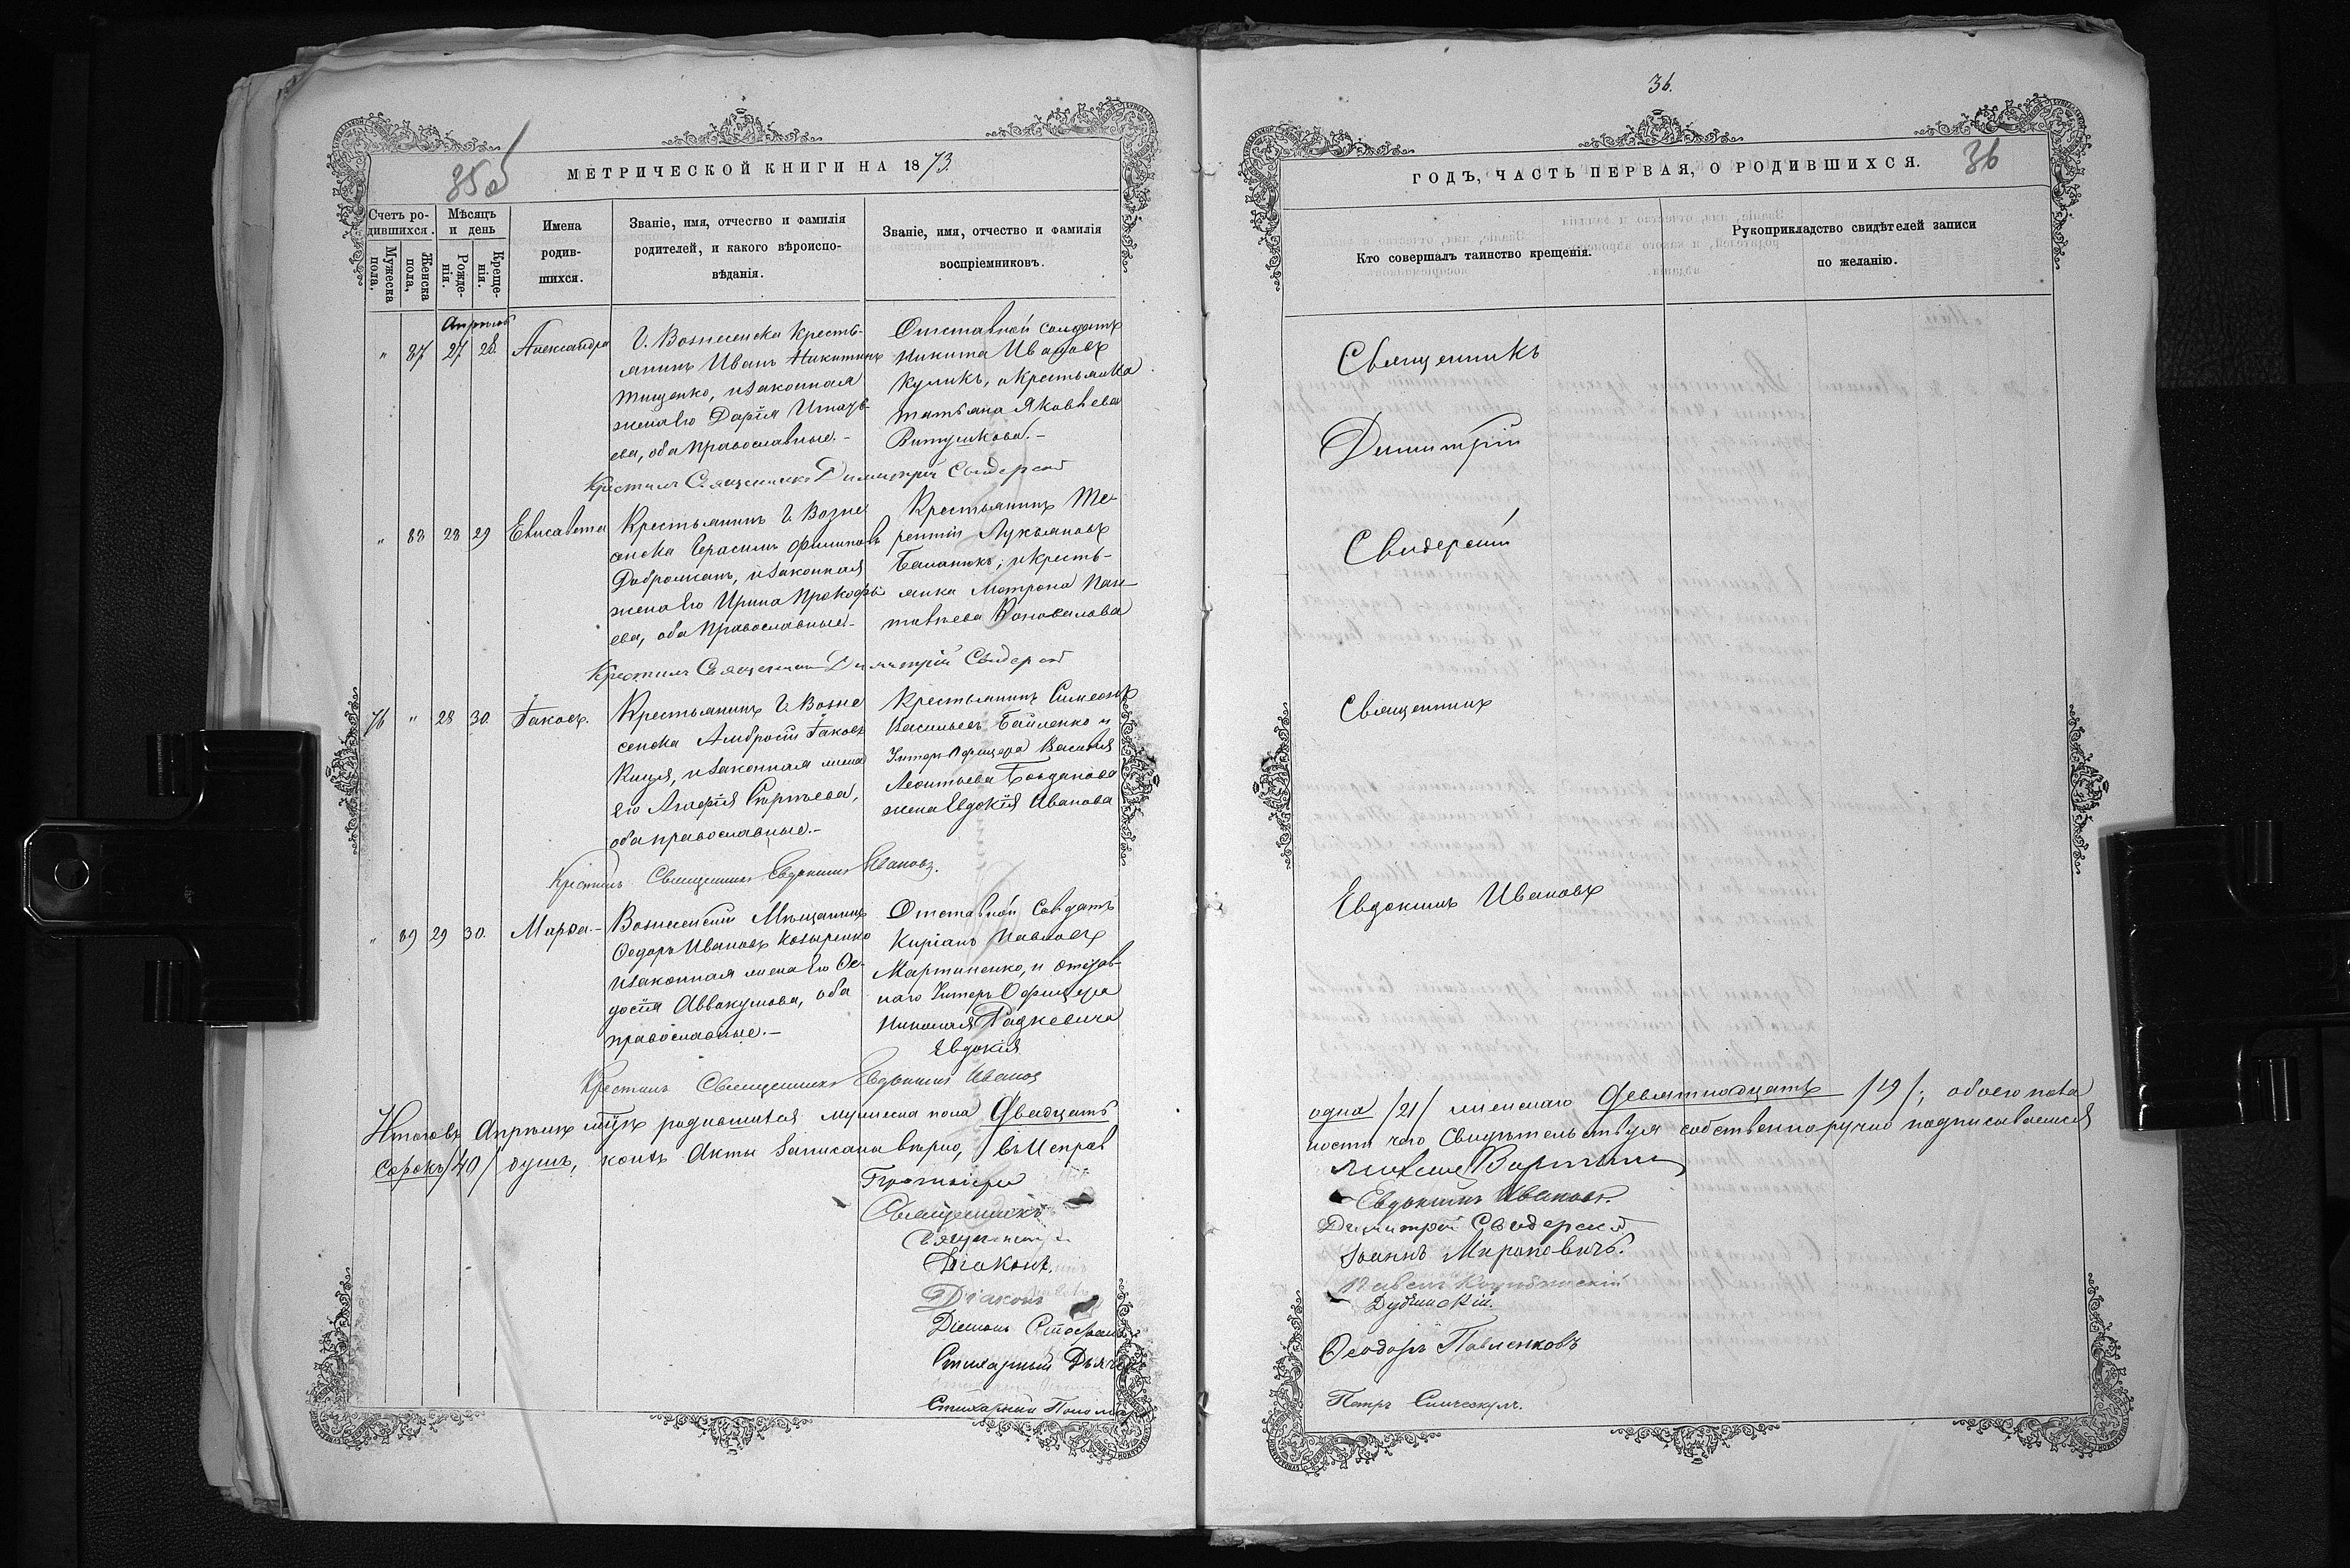 36.
35об
МЕТРИЧЕСКОЙ КНИГИ НА 1873.
Счетъ ро-
дившихся.
Мужеска
пола,
Женска
пола,
Мѣсяцъ
и день
Рожде-
нія.
Креще-
нія.
Имена
родив-
шихся.
Званіе, имя, отчество и фамилія
родителей, и какого вѣроиспо-
вѣданія.
Званіе, имя, отчество и фамилія
воспріемниковъ.
Апрѣль
" 87 27 28. Александра
Г. Вознесенска Кресть-
янинъ Иванъ Никитинъ
Тищенко, и законная
жена Его Дарія Игнать-
ева, оба православные.-
Отставной солдатъ
Никита Ивановъ
Куликъ, и Крестьянка
Татьяна Яковлева
Крестилъ Священникъ Димитрій Свидерскій
" 88 28 29 Елисавета
Крестьянинъ Г. Возне
сенска Герасимъ Филиповъ
жена Его Ирина Прокофь
ева, оба православные.-
Крестьянинъ Те-
рентій Лукьяновъ
Баланюкъ, и Кресть-
янка Матрона Пан-
телеева Коновалова
Крестилъ Священникъ Димитрій Свидерскій
76 " 28 30. Іаковъ.
Крестьянинъ Г. Возне
сенска Амвросій Іаковъ
и законная жена
Его Агафія Сергѣева,
оба православные.-
Крестьянинъ Симеонъ
Васильевъ Байленко и
Унтеръ Офицера Василія
Леонтьева Богданова
жена Евдокія Иванова
Крестилъ Священникъ Евдокимъ Ивановъ.
" 89 29 30. Марѳа.-
Вознесенскій Мѣщанинъ
Ѳедоръ Ивановъ Козыренко
и законная жена Его Ѳе-
досія Аввакумова, оба
православные.-
Отставной Солдатъ
Киріанъ Павловъ
Мартиненко, и отстав-
наго Унтеръ Офицера
Николая Радкевича
Евдокія
Крестилъ Священникъ Евдокимъ Ивановъ
Итого въ Апрѣлѣ мцѣ родившихся мужеска пола Двадцать
Сорокъ /40/ душъ, коихъ Акты записаны вѣрно, въ Исправ
Протоіерей
Священникъ
Священникъ
Діаконъ,
Діаконъ
Діаконъ
Стихарный Дьячекъ
Стихарный Пономарь
ГОДЪ, ЧАСТЬ ПЕРВАЯ, О РОДИВШИХСЯ.
36
Кто совершалъ таинство крещенія.
Рукоприкладство свидѣтелей записи
по желанію.
Священникъ
Димитрій
Свидерскій
Священникъ
Евдокимъ Ивановъ
одна /21/ женскаго Девятнадцать /19/; обоего пола
ности чего Свидѣтельствуя собственноручно подписываемся
Евдокимъ Ивановъ.
Димитрій Свидерскій
Іоаннъ Мироновичъ.
Павелъ
Дубинскій.
Ѳеодоръ Павленковъ
Петръ